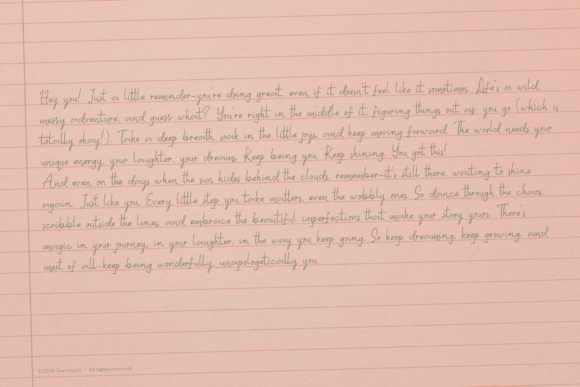 Hey you! Just a little reminder-you're doing great, even if it doesn't feel like it sometimes. Life's a wild
messy adventure, and guess what? You're right in the middle of it, figuring things out as you go (which is
totally okay!). Take a deep breath, soak in the little joys, and keep moving forward. The world needs your
unique energy, your laughter, your dreams. Keep being you. Keep shining. You got this!
And even on the days when the sun hides behind the clouds, remember-it's still there, waiting to shine
again. Just like you. Every little step you take matters, even the wobbly ones. So dance through the chaos,
scribble outside the lines, and embrace the beautiful imperfections that make your story yours. There's
magic in your journey, in your laughter, in the way you keep going. So keep dreaming, keep growing, and
most of all-keep being wonderfully, unapologetically you.
All rights reserved